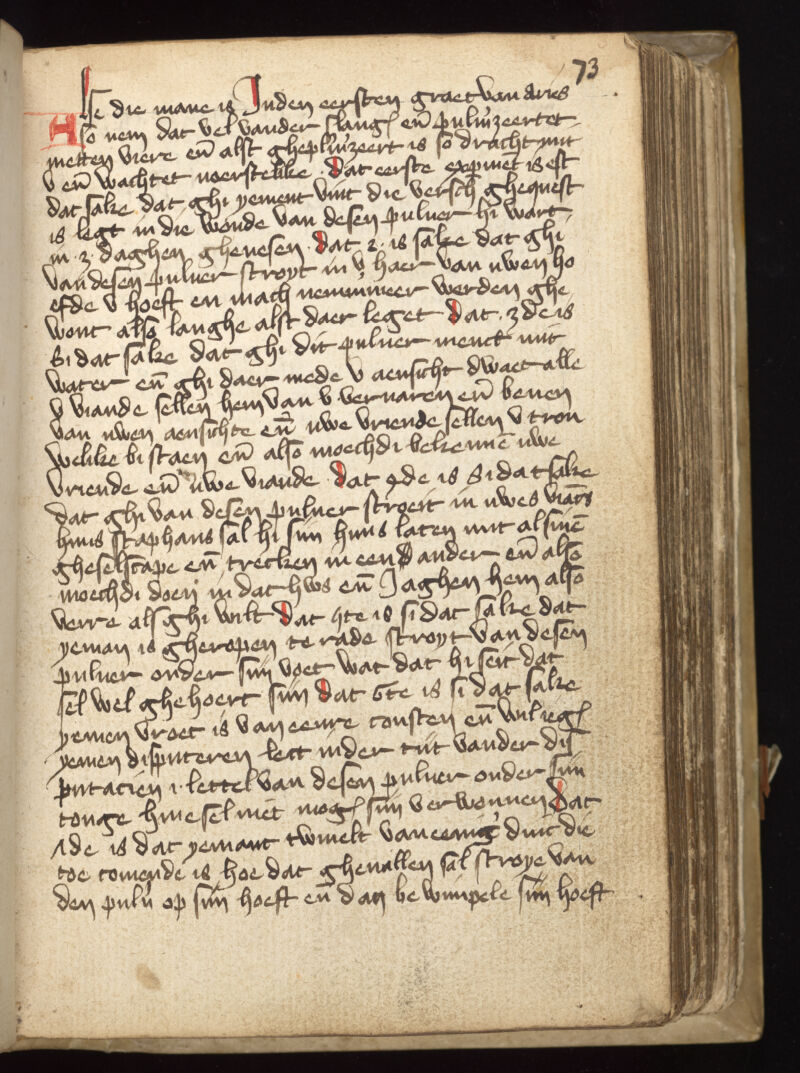 73
Alse die mane is Inden eersten graet van aries
so nem dat vel vander slang͛ en̄ puluizeertet
metten viere en̄ alst ghepluizeert is so dracht mit
v en̄ wachtet neerstelike . Dat eerste expimēt is est
dat sake dat ghi yement vint die versch ghequest
is legt in die wonde van desen puluer hi wart
in .3. daghen ghenesen . dat 2. is sake dat ghi
van desen puluer stroyt in v haer van uwen ho
efde v hoeft en mach nemmmeer werden ghe
wont also langhe alst daer leget dat .3de is
Si dat sake dat ghi dit puluer menct mit
water en̄ ghi daer mede v aensicht dwaet alle
v viande sellen hem van v vervaren en̄ beuen
van uwen aensichte en̄ uwe vriende sellen v tron
welike bi staen en̄ also moechdi bekennē uwe
vriende en̄ uwe viande . dat 4de is Si dat sake
dat ghi van desen puluer stroeit in uwes viāts
huus staphans sal hi sijn huus laten mit al sinē
gheselscape en̄ trecken in een ander en̄ also
moechdi doen in dat hws en̄ Jaghen hem also
verre als ghi wilt dat 5te is si dat sake dat
yeman is gheropen te rade stroyt van desen
puluer onder sijn voet wat dat hi seit dat
sel wel ghehoert sijn dat 6te is si dat sake
yemen vroet is van eenre consten en̄ wil ieg͛
yemen disputeren lect inder tijt vander dis
putacien .i. lettel van desen puluer onder sijn
tonge hine sel niet mog͛ sijn verwonnen dat
7de is dat yemant twiuelt van eenig͛ dinc die
toe comende is hoe dat gheuallen sal stroye van
den pulū op sijn hoeft en̄ dan bewimpele sijn hoeft